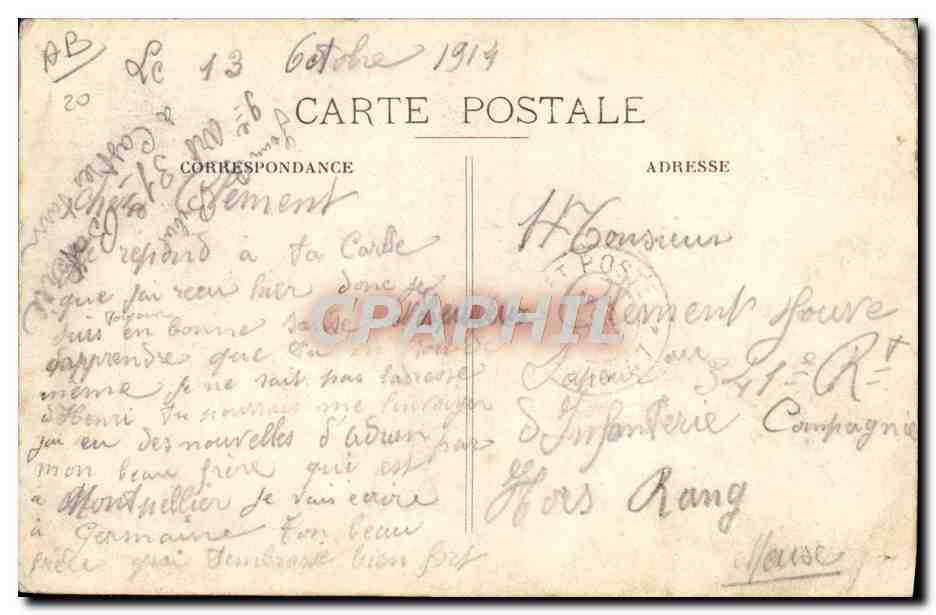 AB
20
Le 13 Octobre 1914
CARTE POSTALE
CORRESPONDANCE
ADRESSE
Cher Clément
Je repond à ta Carte
que j'ai recu hier donc je
suis toujour en bonne santé
d'apprendre que tu en
meme je ne sait pas ladresse
d'Henri tu pourrais me lenvoyer
jai eu des nouvelles d'Adrien par
mon beau frère qui est
a Montpellier je vais ecrire
à Germaine ton beau
frère qui t'embrasse bien fort
à Castres Tarn
Monsieur
Clément Jouve
au 341e Rt
d'Infanterie Compagnie
Hors Rang
Meuse
POSTE
CPARHIL